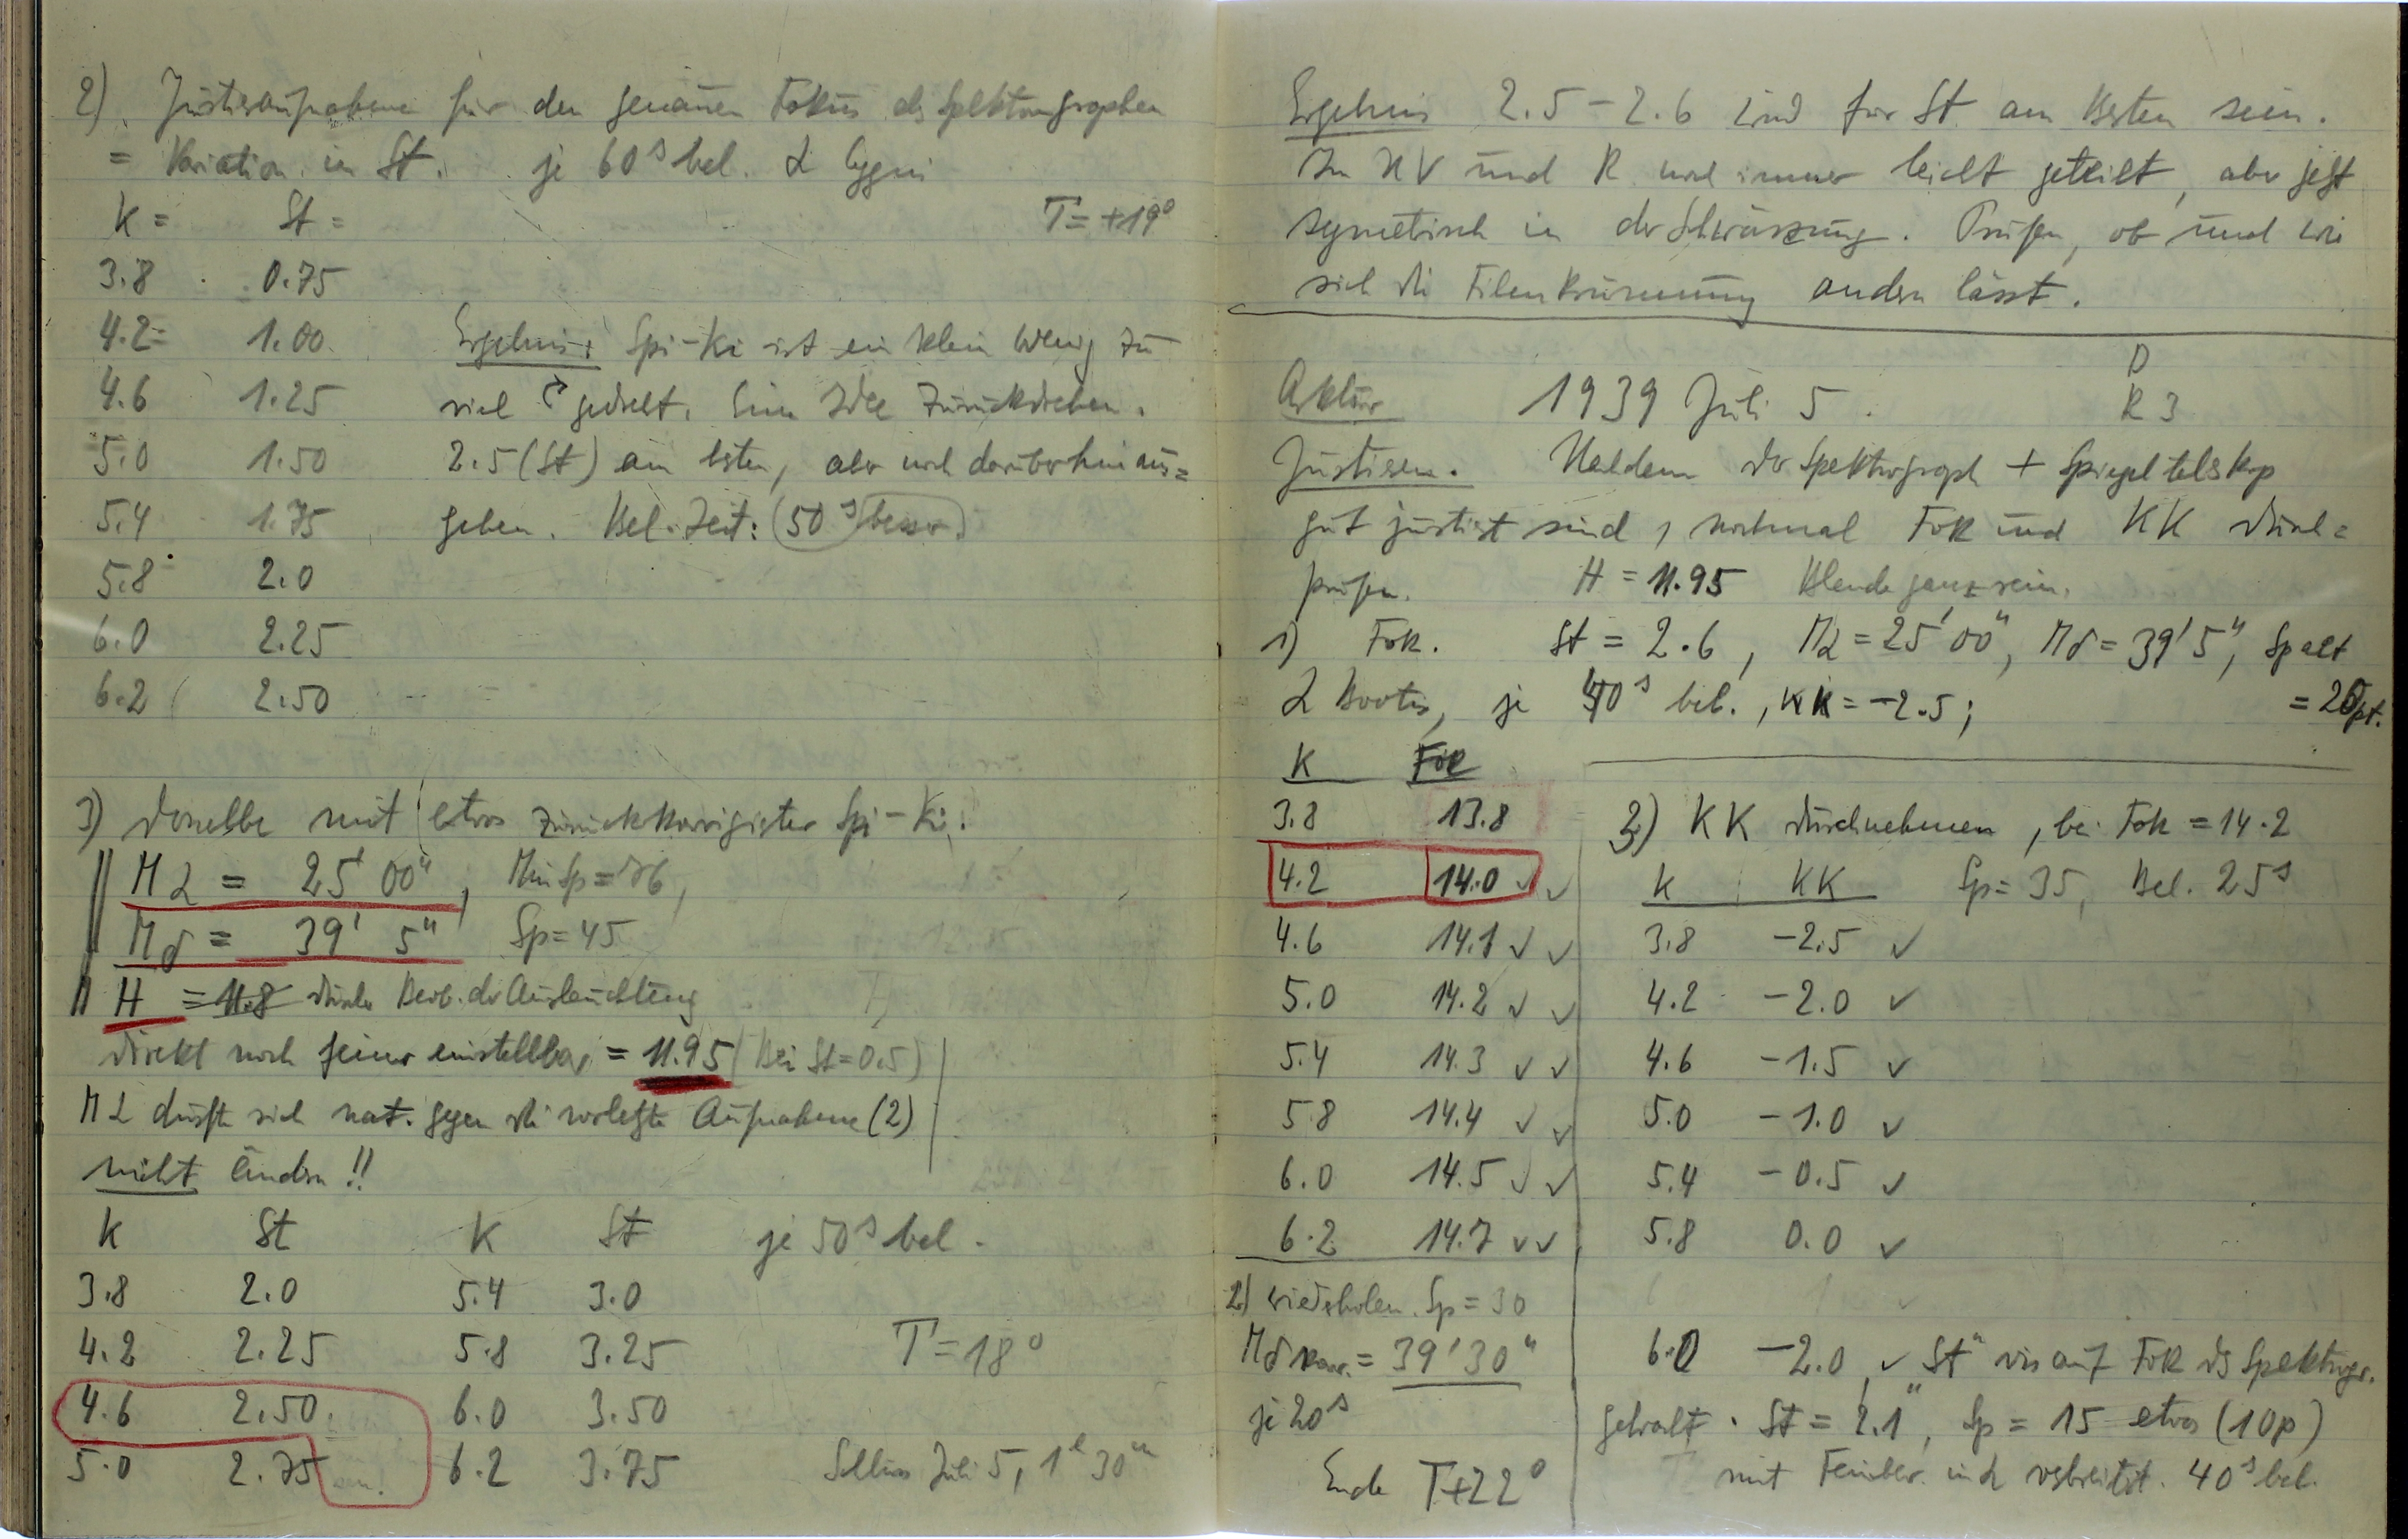 2) Justieraufnahme für den genauen Fokus des Spektrographen
= Variation in St. je 60s bel. α Cygni
K = St = T = +19°
3.8 0.75
4.2 1.00
4.6 1.25
5.0 1.50
5.4 1.75
5.8 2.0
6.0 2.25
6.2 2.50
Ergebnis: Spi-Ki ist ein klein wenig zu
viel gedreht. Eine Idee zurückdrehen.
2.5 (St) am besten, aber noch darüber hinaus=
gehen. Bel. Zeit: (50s besser)
3) Dasselbe mit etwas zurückkorrigierter Spi-Ki.
Mα = 25' 00", Min Sp = 26,
Mδ = 39' 5" Sp = 45
H = 11.8 durch Beob. der Ausleuchtung
direkt noch feiner einstellbar = 11.95 (Bei St = 0.5)
Mα durfte sich nat. gegen die vorletzte Aufnahme (2)
nicht ändern!!
K St K St je 50s bel.
3.8 2.0 5.4 3.0
4.2 2.25 5.8 3.25 T = 18°
4.6 2.50 6.0 3.50
5.0 2.75 6.2 3.75 Schluss Juli 5, 1h 30m
Ergebnis 2.5 – 2.6 wird für St am besten sein.
Im UV und R noch immer leicht geteilt, aber jetzt
symetrisch in der Schwärzung. Prüfen, ob und wie
sich die Filmkrümmung ändern lässt.
D
Arktur 1939 Juli 5. R 3
Justieren. Nachdem der Spektrograph + Spiegelteleskop
gut justiert sind, nochmal Fok und KK durch=
prüfen. H = 11.95 Blende ganz rein.
1) Fok. St = 2.6, Mα = 25' 00", Mδ = 39' 5", Spalt
α Bootis, je 40s bel., KK = -2.5; = 20pt.
K Fok
3.8 13.8
4.2 14.0 ✓ ✓
4.6 14.1 ✓ ✓
5.0 14.2 ✓ ✓
5.4 14.3 ✓ ✓
5.8 14.4 ✓ ✓
6.0 14.5 ✓ ✓
6.2 14.7 ✓ ✓
2) wiederholen. Sp = 30
Mδ korr. = 39' 30"
je 20s
Ende T+22°
3) KK durchnehmen, bei Fok = 14.2
K KK Sp = 35, Bel. 25s
3.8 -2.5 ✓
4.2 -2.0 ✓
4.6 -1.5 ✓
5.0 -1.0 ✓
5.4 -0.5 ✓
5.8 0.0 ✓
6.0 -2.0 ✓ St" vis auf Fok des Spektrogr.
gebracht. St = 2.1", Sp = 15 etwas (10p)
mit Feinbew. in α verbreitert. 40s bel.